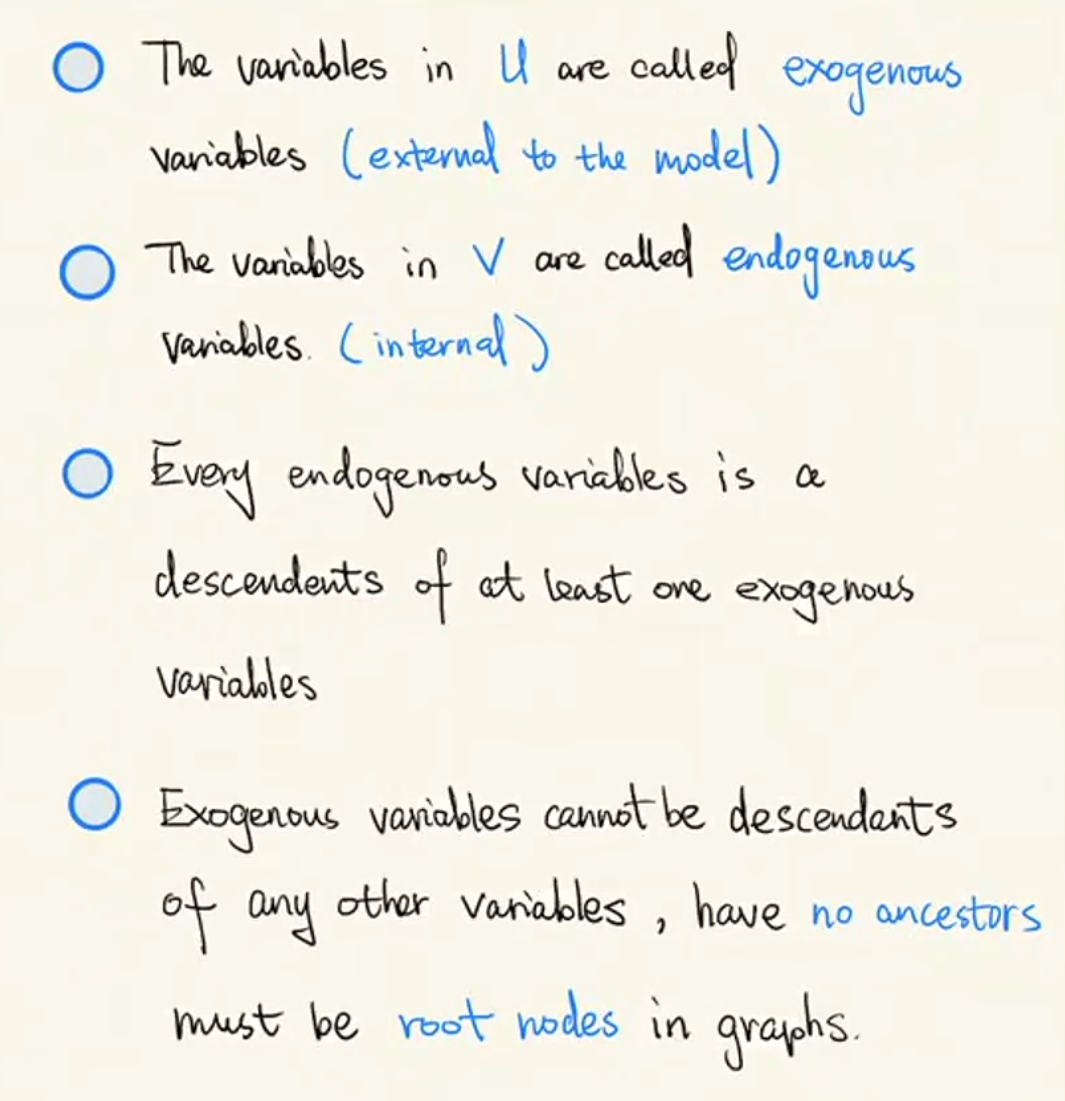 The variables in U are called exogenous
variables (external to the model)
The variables in V are called endogenous
variables. (internal)
Every endogenous variables is a
descendents of at least one exogenous
variables
Exogenous variables cannot be descendants
of any other variables, have no ancestors
must be root nodes in graphs.